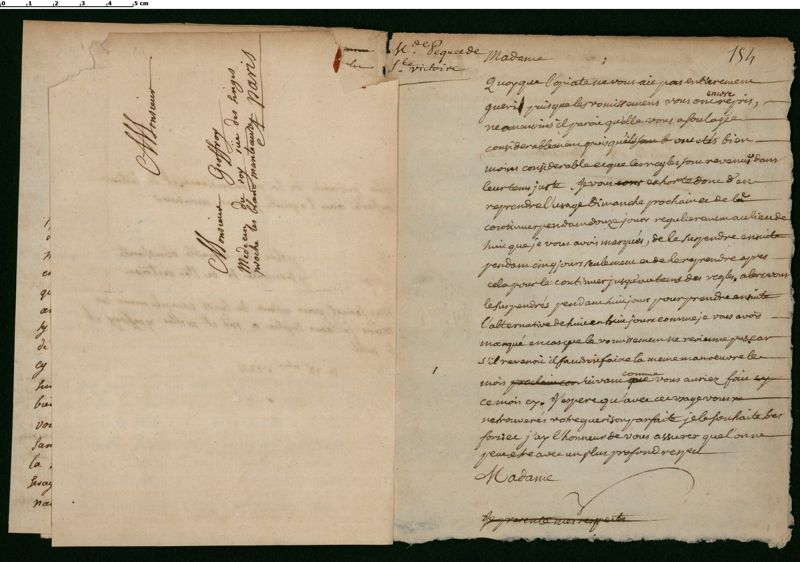 Monsieur
Monsieur Geoffroy
Médecin du roy rue des singes
proche les blans manteaux
A paris
M.de Pequet de
Ste victoire
154
Madame
Quoyque l'opiate ne vous aie pas entierement
gueri puisque les vomissemens vous ont encore repris,
neanmoins il paroit qu'elle vous a soulagée
considerablement puisqu'ils ont etés bien
moins considerable et que les regles sont revenues dans
leur tems juste. Je vous exhorte donc d'en
reprendre l'usage Dimanche prochain et de la
continuer pendant douze jours regulierement au lieu de
huit que je vous avois marqués, de le suspendre ensuite
pendant cinq jours seulement et de le reprendre apres
cela pour le continuer jusqu'au tems des regles, alors vous
le suspendrés pendant huit jours pour prendre ensuite
l'alternative de huit en huit jours comme je vous avois
marqué en cas que le vomissement ne revienne pas car
s'il revenoit il faudroit faire la meme manoeuvre le
mois prochain suivant comme vous auriez fait
ce mois cy. J'espere qu'avec ce
vous trouverés votre guerison parfaite je le souhaite bes
fort et j'ay l'honneur de vous assurer que l'on ne
peut etre avec un plus profond respect
Madame
Je presente mes respects